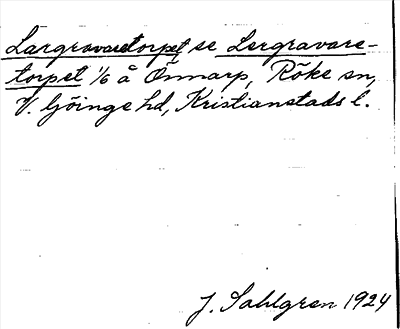 Largravaretorpet se Lergravare-
torpet 1/6 å Önnarp, Röke sn,
V. Göinge hd, Kristianstads l.
J. Sahlgren 1924